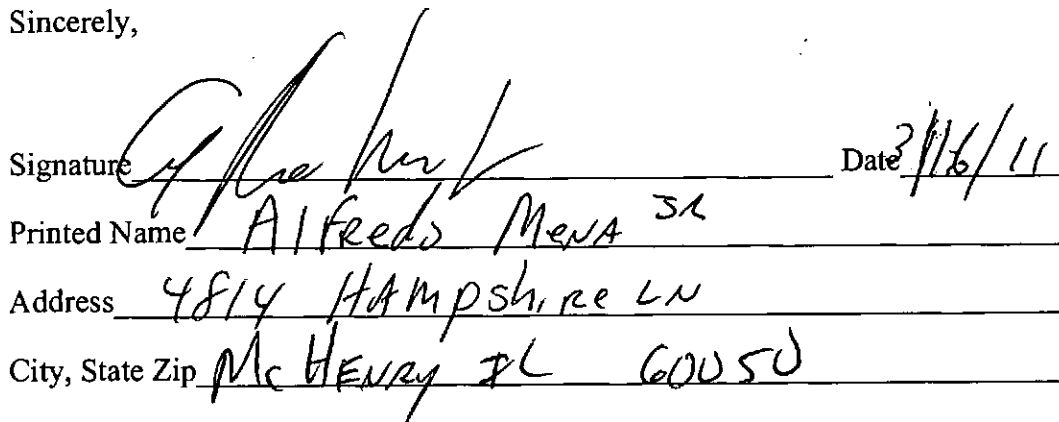 Sincerely,
Signature Date 3/16/11
Printed Name Alfredo Mena JR
Address 4814 HAMpshire LN
City, State Zip Mc HENRY IL 60050